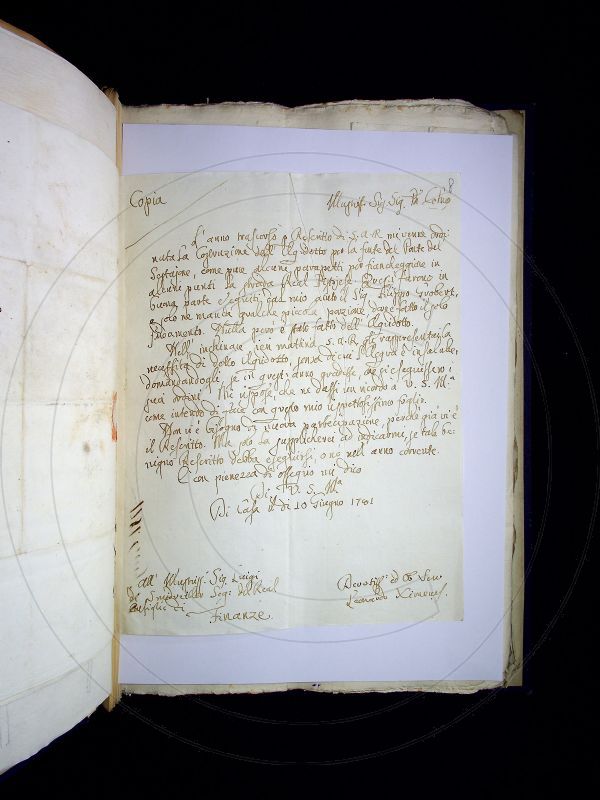 Copia
Illustriss. Sig. Sig. Pn. Colmo
L'anno trascorso p Rescritto di S.A.R mi venne ordi
nata la Costruzione dell' Aquidotto per la fonte del Ponte del
Septajone, come pure alcuni parapetti per fiancheggiare in
alcuni punti la strada Real Pistojese. Questi furono in
buona parte eseguiti, dal mio aiuto il Sig. Filippo
e solo ne manca qualche piccola porzione, dove è fatto il solo
fondamento. Nulla però è stato fatto dell' Aquidotto.
Nell' inchinare ieri mattina S.A.R gli rappresentai la
necessità di detto Aquidotto, senza di cui l'Allegra è in secche,
domandandogli, se in quest' anno gradisse, che si eseguissero i
suoi ordini. Mi rispose, che ne dassi un ricordo a V. S. Illma
come intendo di fare con questo mio rispettosissimo foglio.
Non vi è bisogno di nuova partecipazione, perchè già vi è
il Rescritto. Ma solo la supplicherei ad indicarmi, se tale be-
nigno Rescritto debba eseguirsi, o no nell' anno corrente.
E con pienezza di ossequio mi dico
Di V. S. Illma
Di Casa li di 10 Giugno 1781
All' Illustriss. Sig. Luigi
de Seg. del Real
Consiglio di
Finanze.
Devotiss. ed Ob. Serv.
Leonardo Ximenes.